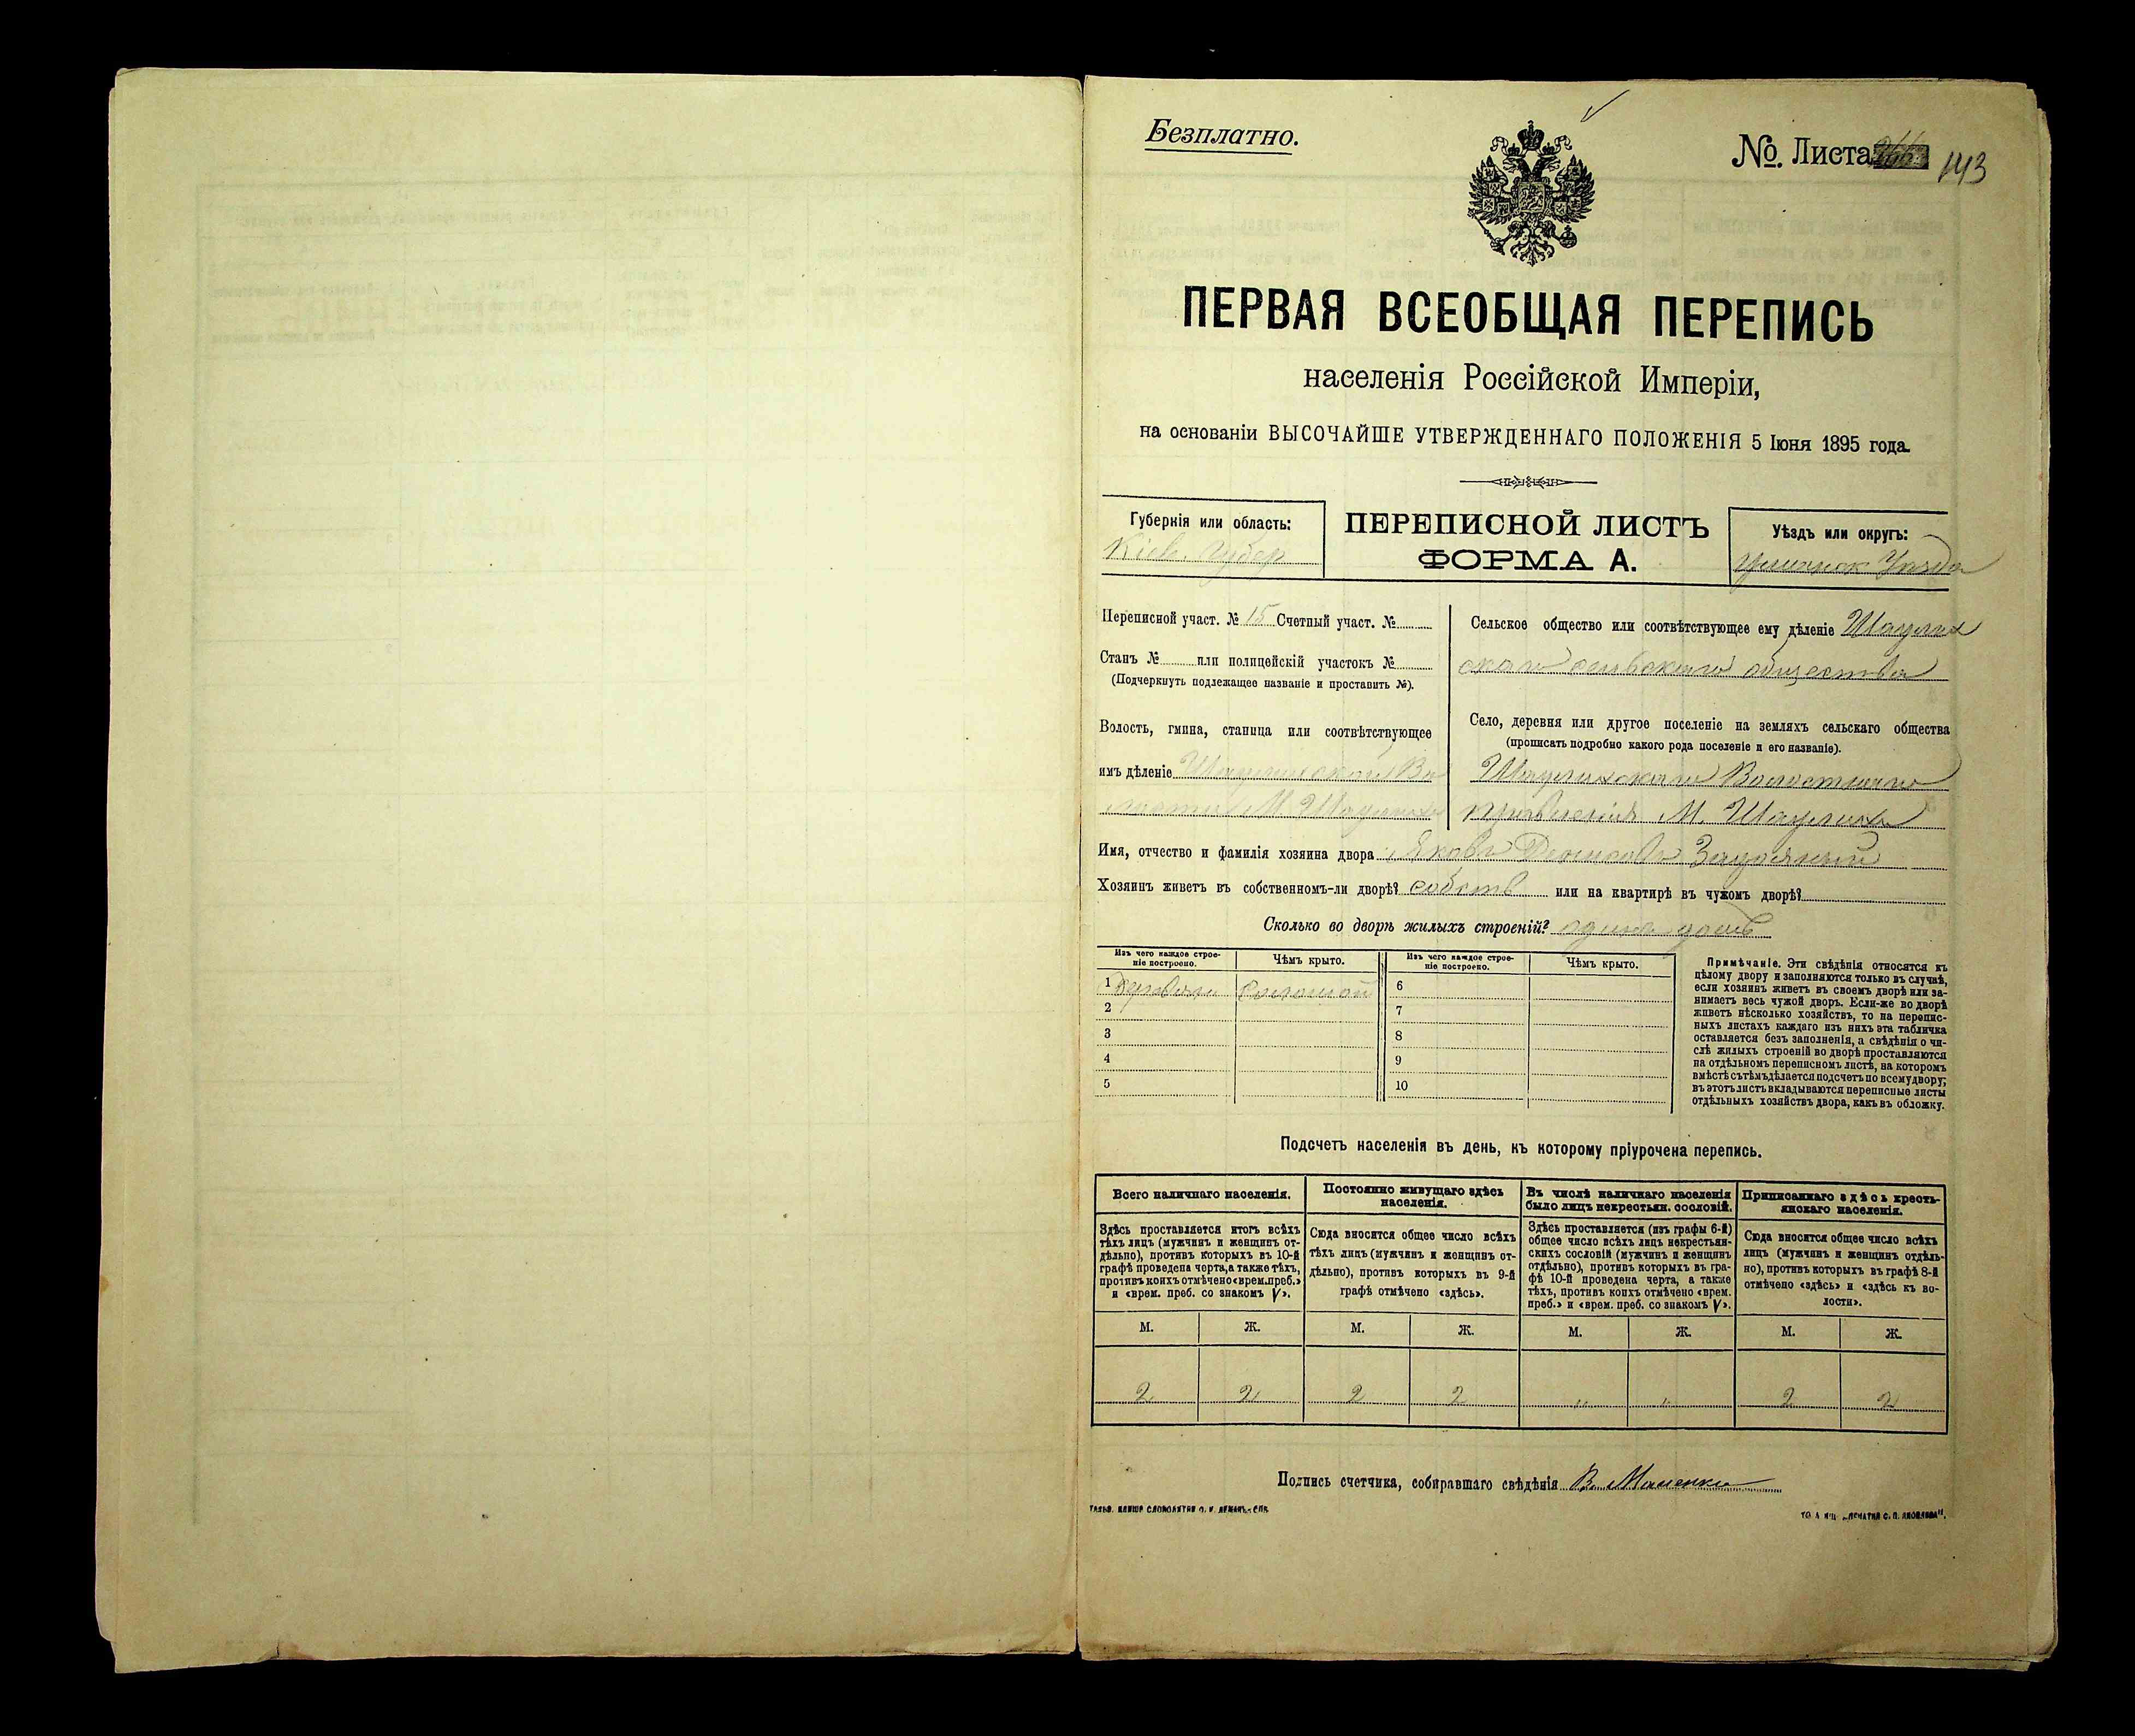 Безплатно.
№ Листа 143
ПЕРВАЯ ВСЕОБЩАЯ ПЕРЕПИСЬ
населенія Россійской Имперіи,
на основаніи ВЫСОЧАЙШЕ УТВЕРЖДЕННАГО ПОЛОЖЕНІЯ 5 Іюня 1895 года.
Губернія или область:
Кіев. Губер
ПЕРЕПИСНОЙ ЛИСТЪ
ФОРМА А.
Уѣздъ или округъ:
Уманск Уѣзда
Переписной участ. № 15 Счетный участ. №
Станъ № или полицейскій участокъ №
(Подчеркнуть подлежащее названіе и проставить №).
Волость, гмина, станица или соотвѣтствующее
имъ дѣленіе Шаулихской Во
лости М. Шаулиха
Сельское общество или соотвѣтствующее ему дѣленіе Шаулих
скаго сельскаго общества
Село, деревня или другое поселеніе на земляхъ сельскаго общества
(прописать подробно какого рода поселеніе и его названіе).
Шаулихскаго Волостнаго
правленія М. Шаулиха
Имя, отчество и фамилія хозяина двора Яковъ
Хозяинъ живетъ въ собственномъ-ли дворѣ? собств или на квартирѣ въ чужомъ дворѣ?
Сколько во дворѣ жилыхъ строеній? одинъ домъ
Изъ чего каждое строе-
ніе построено.
Чѣмъ крыто.
Изъ чего каждое строе-
ніе построено.
Чѣмъ крыто.
1 Соломой
2
3
4
5
6
7
8
9
10
Примѣчаніе. Эти свѣдѣнія относятся къ
цѣлому двору и заполняются только въ случаѣ,
если хозяинъ живетъ въ своемъ дворѣ или за-
нимаетъ весь чужой дворъ. Если-же во дворѣ
живетъ нѣсколько хозяйствъ, то на перепис-
ныхъ листахъ каждаго изъ нихъ эта табличка
оставляется безъ заполненія, а свѣдѣнія о чи-
слѣ жилыхъ строеній во дворѣ проставляются
на отдѣльномъ переписномъ листѣ, на которомъ
вмѣстѣ съ тѣмъ дѣлается подсчетъ по всему двору;
въ этотъ листъ вкладываются переписные листы
отдѣльныхъ хозяйствъ двора, какъ въ обложку.
Подсчетъ населенія въ день, къ которому пріурочена перепись.
Всего наличнаго населенія.
Здѣсь проставляется итогъ всѣхъ
тѣхъ лицъ (мужчинъ и женщинъ от-
дѣльно), противъ которыхъ въ 10-й
графѣ проведена черта, а также тѣхъ,
противъ коихъ отмѣчено «врем. преб.»
и «врем. преб. со знакомъ V».
Постоянно живущаго здѣсь
населенія.
Сюда вносится общее число всѣхъ
тѣхъ лицъ (мужчинъ и женщинъ от-
дѣльно), противъ которыхъ въ 9-й
графѣ отмѣчено «здѣсь».
Въ числѣ наличнаго населенія
было лицъ некрестьян. сословій.
Здѣсь проставляется (изъ графы 6-й)
общее число всѣхъ лицъ некрестьян-
скихъ сословій (мужчинъ и женщинъ
отдѣльно), противъ которыхъ въ гра-
фѣ 10-й проведена черта, а также
тѣхъ, противъ коихъ отмѣчено «врем.
преб.» и «врем. преб. со знакомъ V».
Приписаннаго здѣсь кресть-
янскаго населенія.
Сюда вносится общее число всѣхъ
лицъ (мужчинъ и женщинъ отдѣль-
но), противъ которыхъ въ графѣ 8-й
отмѣчено «здѣсь» и «здѣсь къ во-
лости».
М. Ж. М. Ж. М. Ж. М. Ж.
2 2 2 2 " " 2 2
Подпись счетчика, собиравшаго свѣдѣнія В.